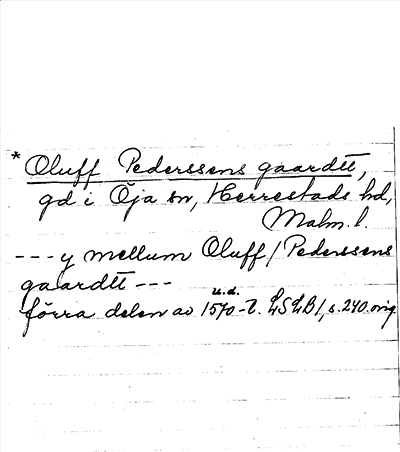 * Oluff Pederssens gaardtt,
gd i Öja sn, Herrestads hd,
Malm. l.
--- y mellum Oluff / Pederssens
gaardtt ---
u.d.
förra delen av 1570-t. LSLB 1, s. 240. orig.